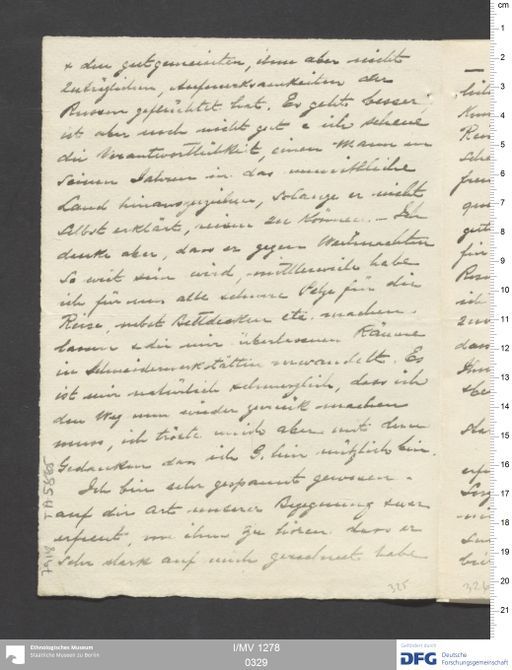 & den gutgemeinten, ihm aber nicht
zuträglichen, Aufmerksamkeiten der
Russen geflüchtet hat. Es geht besser,
ist aber noch nicht gut & ich scheue
die Verantwortlichkeit, einen Mann in
seinen Jahren in das unwirthliche
Land hinauszuziehen, solange er nicht
selbst erklärt, reisen zu können. – Ich
denke aber, dass er gegen Weihnachten
so weit sein wird, mittlerweile habe
ich für uns alle schwere Pelze für die
Reise, nebst Bettdecken etc. machen
lassen & die mir überlassenen Räume
in Schneiderwerkstätten verwandelt. Es
ist mir natürlich schmerzlich, dass ich
den Weg nun wieder zurück machen
muss, ich tröste mich aber mit dem
Gedanken dass ich G. hier nützlich bin.
Ich bin sehr gespannt gewesen
auf die Art unserer Begegnung & war
erfreut, von ihm zu hören dass er
sehr stark auf mich gerechnet habe
325
326
I/MV 1278
0329
Ethnologisches Museum
Staatliche Museen zu Berlin
Gefördert durch
DFG Deutsche
Forschungsgemeinschaft
cm
1
2
3
4
5
6
7
8
9
10
11
12
13
14
15
16
17
18
19
20
21